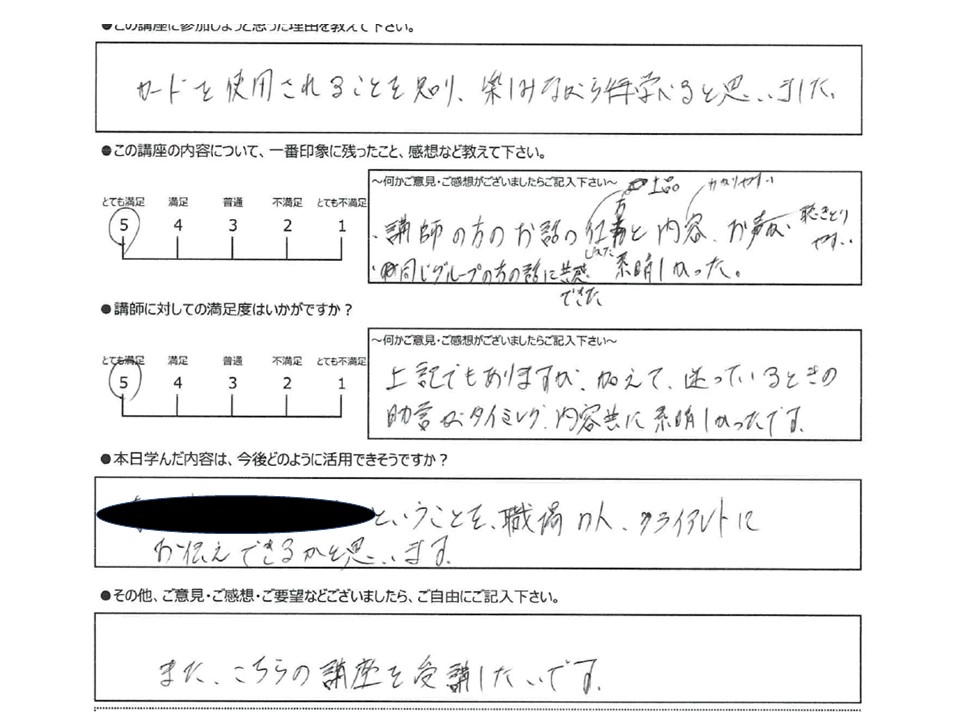 ●この講座に参加しようと思った理由を教えて下さい。
カードを使用されることを知り、楽しみながら学べると思いました。
●この講座の内容について、一番印象に残ったこと、感想など教えて下さい。
とても満足 満足 普通 不満足 とても不満足
5 4 3 2 1
～何かご意見・ご感想がございましたらご記入下さい～
上品
わかりやすい
・講師の方のお話の仕方と内容、お声が聴きとりやすい
素晴しかった。
・同じグループの方の話に共感できた
●講師に対しての満足度はいかがですか？
とても満足 満足 普通 不満足 とても不満足
5 4 3 2 1
～何かご意見・ご感想がございましたらご記入下さい～
上記でもありますが、加えて、迷っているときの
助言がタイミング、内容共に素晴しかったです。
●本日学んだ内容は、今後どのように活用できそうですか？
ということを、職場の人、クライアントに
お伝えできるかと思います。
●その他、ご意見・ご感想・ご要望などございましたら、ご自由にご記入下さい。
また、こちらの講座を受講したいです。